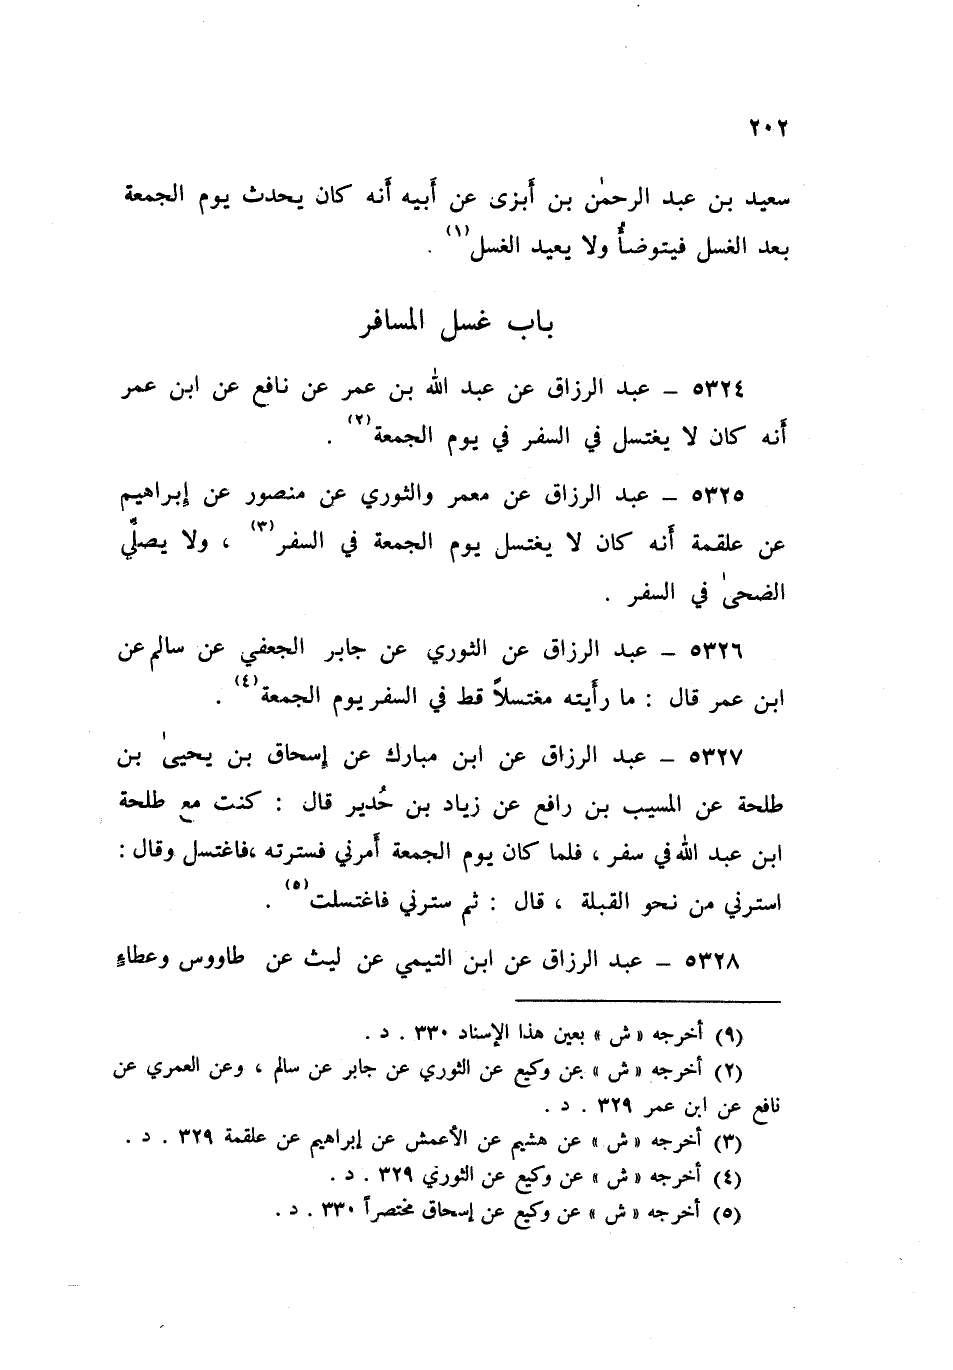 ٢٠٢
سعيد بن عبد الرحمٰن بن أَبزى عن أَبيه أَنه كان يحدث يوم الجمعة
بعد الغسل فيتوضأُ ولا يعيد الغسل(١) .
باب غسل المسافر
٥٣٢٤ – عبد الرزاق عن عبد الله بن عمر عن نافع عن ابن عمر
أَنه كان لا يغتسل في السفر في يوم الجمعة(٢) .
٥٣٢٥ – عبد الرزاق عن معمر والثوري عن منصور عن إبراهيم
عن علقمة أَنه كان لا يغتسل يوم الجمعة في السفر(٣) ، ولا يصلِّي
الضحىٰ في السفر .
٥٣٢٦ – عبد الرزاق عن الثوري عن جابر الجعفي عن سالم عن
ابن عمر قال : ما رأَيته مغتسلاً قط في السفر يوم الجمعة(٤) .
٥٣٢٧ – عبد الرزاق عن ابن مبارك عن إسحاق بن يحيىٰ بن
طلحة عن المسيب بن رافع عن زياد بن حُدير قال : كنت مع طلحة
ابن عبد الله في سفر ، فلما كان يوم الجمعة أَمرني فسترته ،فاغتسل وقال :
استرني من نحو القبلة ، قال : ثم سترني فاغتسلت(٥) .
٥٣٢٨ – عبد الرزاق عن ابن التيمي عن ليث عن طاووس وعطاءٍ
(٩) أخرجه « ش » بعين هذا الإسناد ٣٣٠ . د .
(٢) أخرجه « ش » عن وكيع عن الثوري عن جابر عن سالم ، وعن العمري عن
نافع عن ابن عمر ٣٢٩ . د .
(٣) أخرجه « ش » عن هشيم عن الأعمش عن إبراهيم عن علقمة ٣٢٩ . د .
(٤) أخرجه « ش » عن وكيع عن الثوري ٣٢٩ . د .
(٥) أخرجه « ش » عن وكيع عن إسحاق مختصراً ٣٣٠ . د .